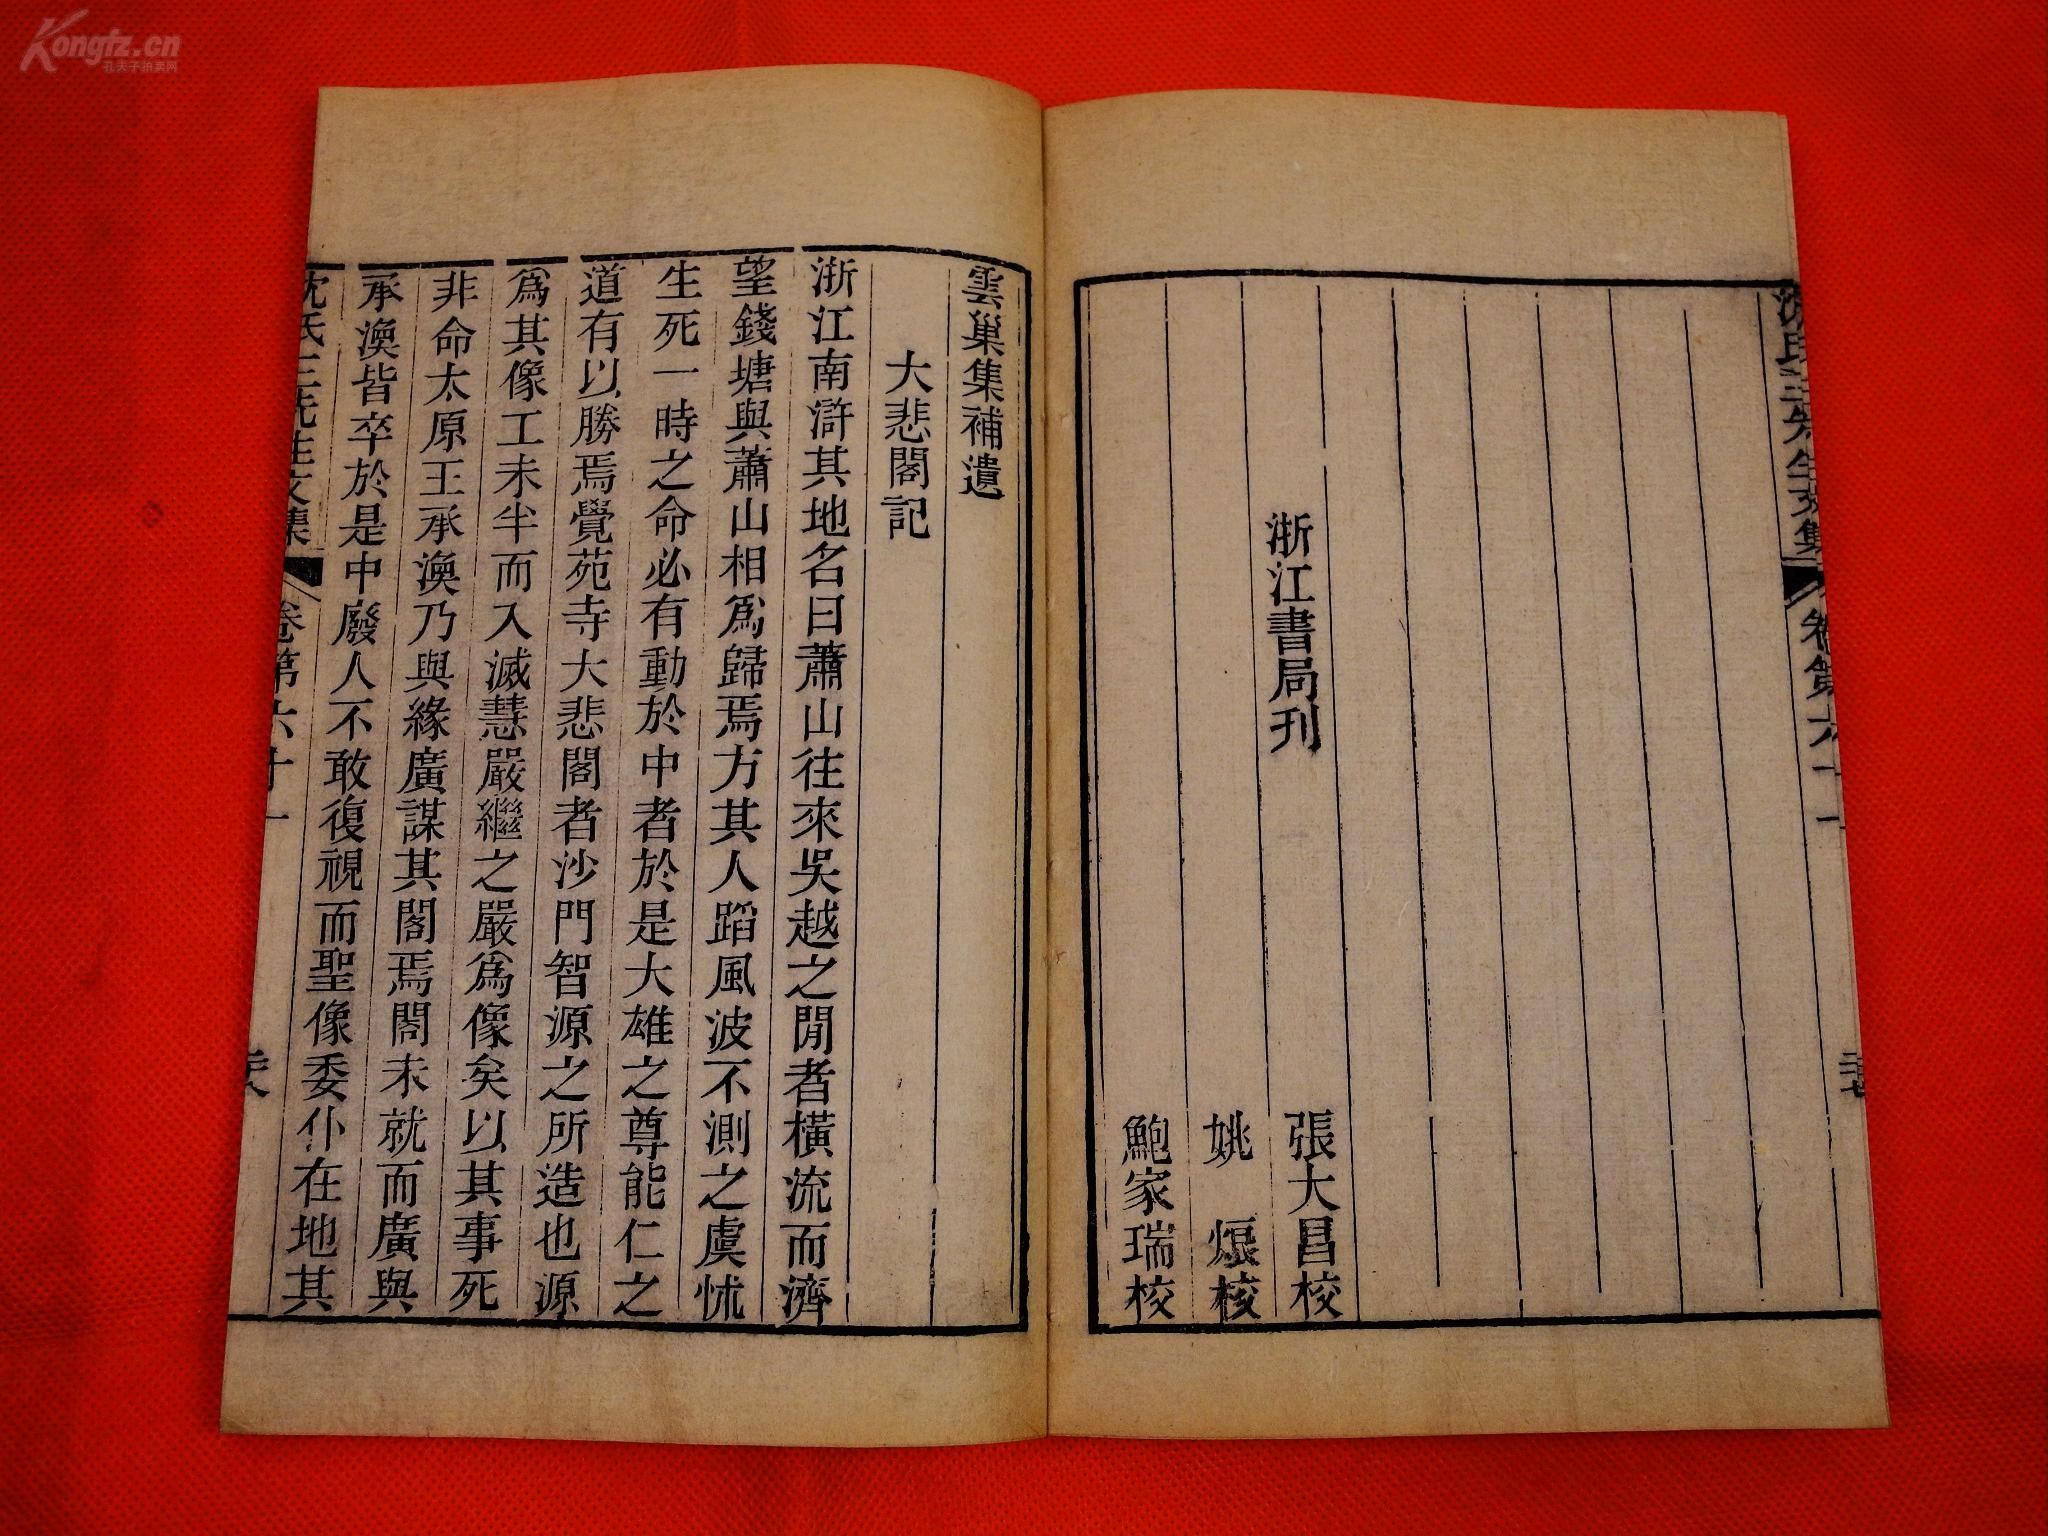 Kongfz.cn
孔夫子拍卖网
沈氏三先生文集 卷第六十一
浙江書局刊 張大昌校
姚 煨校
鮑家瑞校
雲巢集補遺
大悲閣記
浙江南滸其地名曰蕭山往來吳越之閒者橫流而濟
望錢塘與蕭山相爲歸焉方其人蹈風波不測之虞怵
生死一時之命必有動於中者於是大雄之尊能仁之
道有以勝焉覺苑寺大悲閣者沙門智源之所造也源
爲其像工未半而入滅慧嚴繼之嚴爲像矣以其事死
非命太原王承渙乃與緣廣謀其閣焉閣未就而廣與
承渙皆卒於是中廢人不敢復視而聖像委仆在地其
沈氏三先生文集 卷第六十一